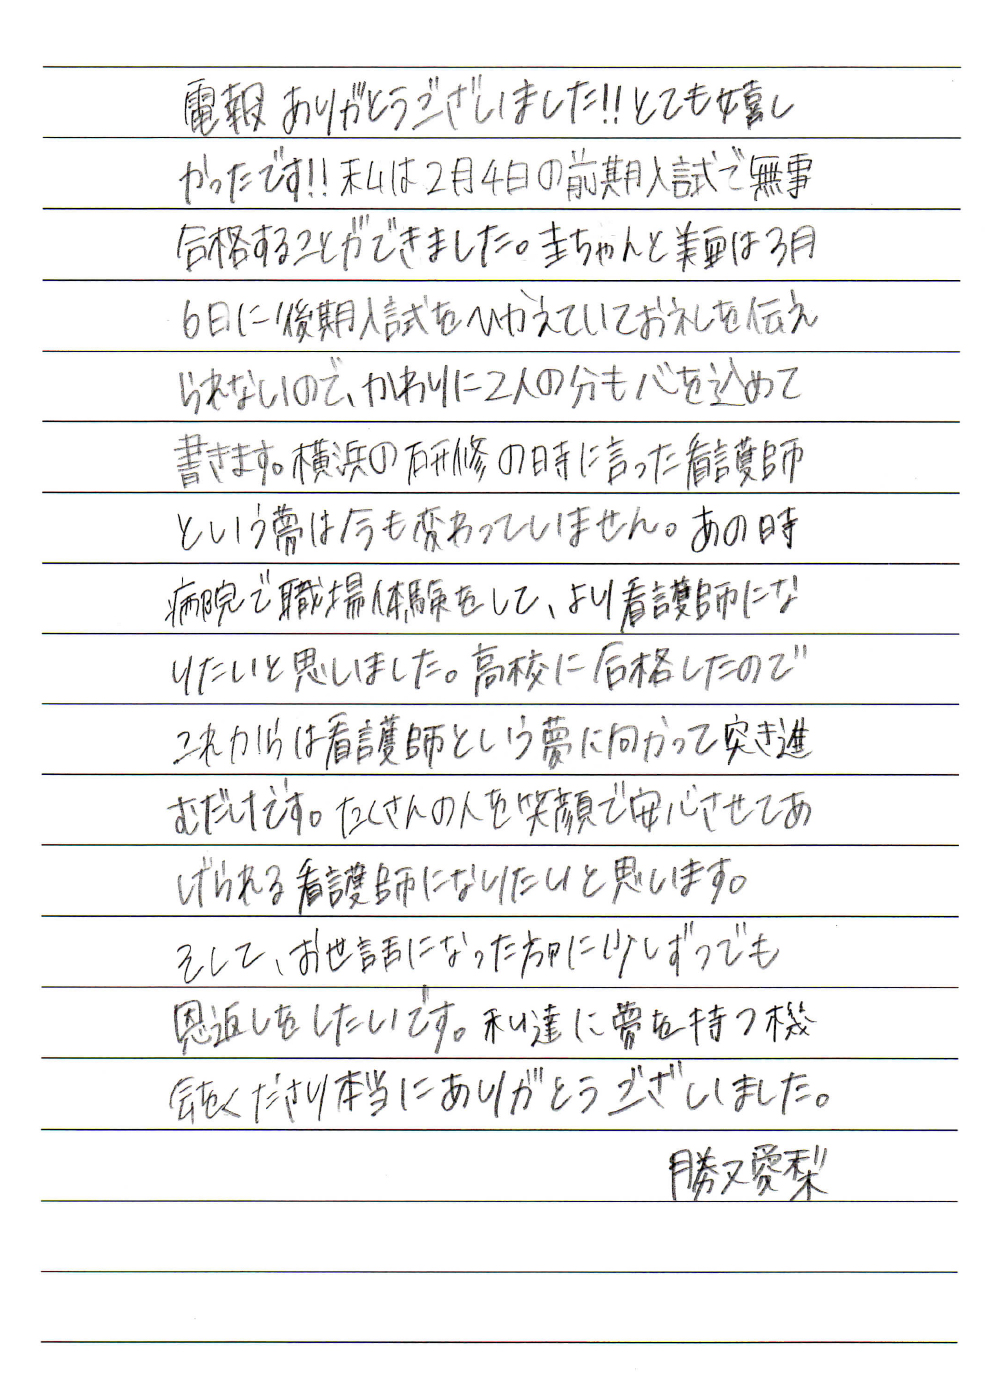 電報ありがとうございました!!とても嬉し
かったです!!私は2月4日の前期入試で無事
合格することができました。圭ちゃんと美亜は3月
6日に後期入試をひかえていてお礼を伝え
られないので、かわりに2人の分も心を込めて
書きます。横浜の研修の時に言った看護師
という夢は今も変わっていません。あの時
病院で職場体験をして、より看護師にな
りたいと思いました。高校に合格したので
これからは看護師という夢に向かって突き進
むだけです。たくさんの人を笑顔で安心させてあ
げられる看護師になりたいと思います。
そして、お世話になった方々に少しずつでも
恩返しをしたいです。私達に夢を持つ機
会をくださり本当にありがとうございました。
勝又愛梨